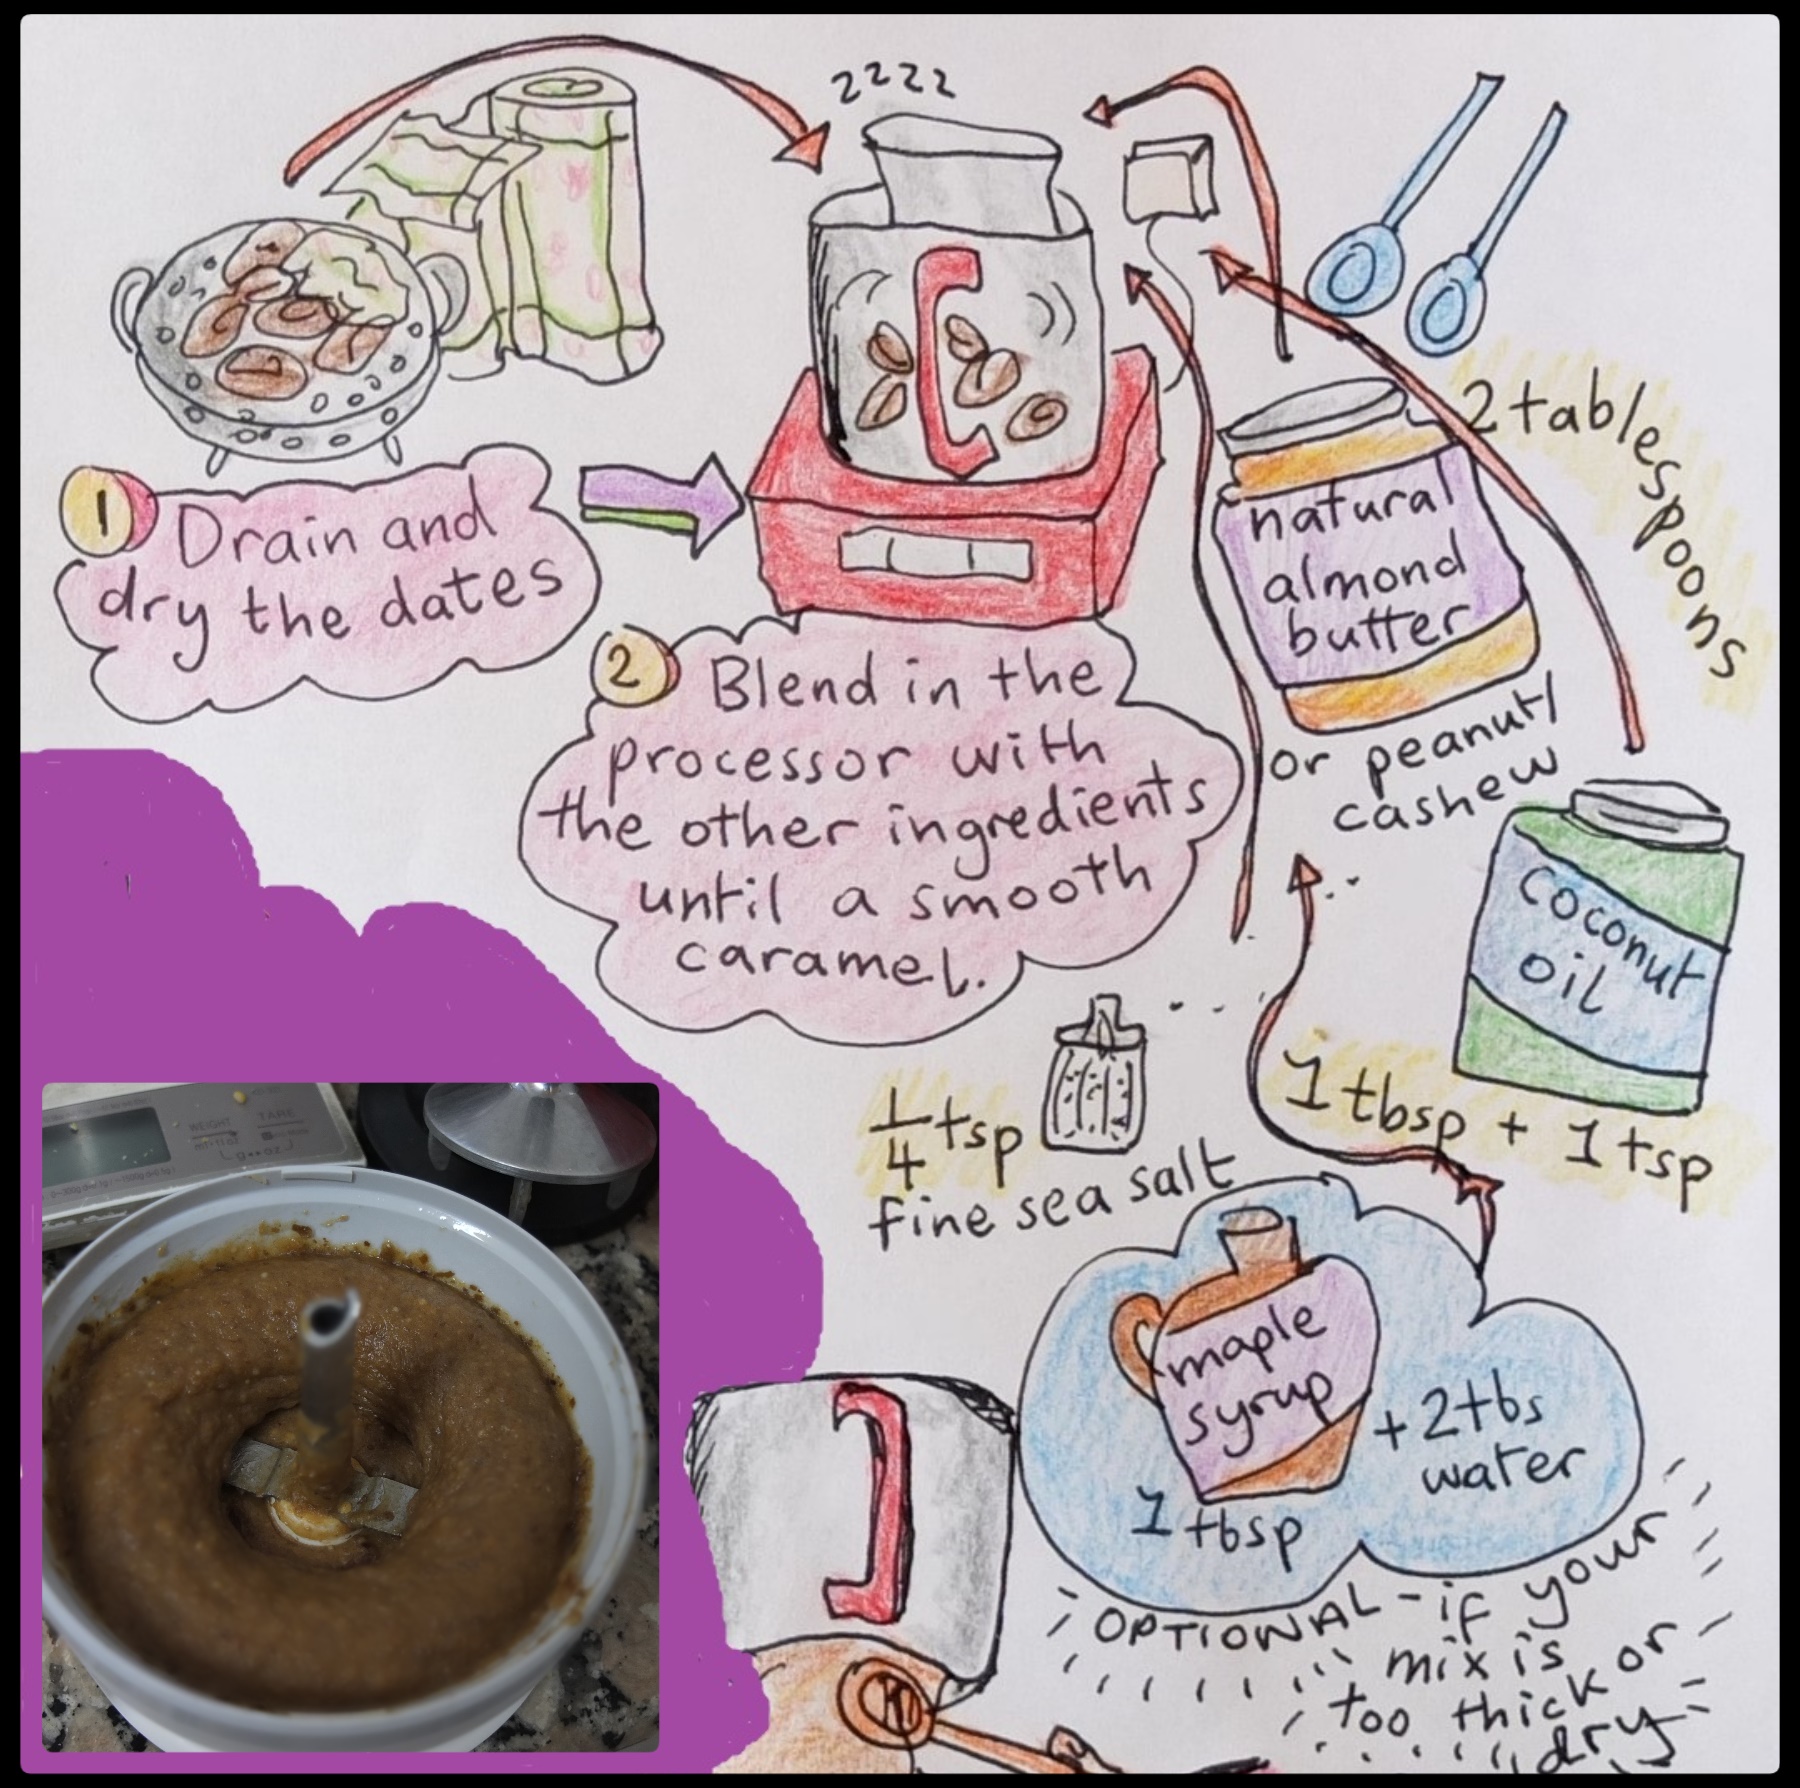 zzzz
1 Drain and
dry the dates
2 Blend in the
processor with
the other ingredients
until a smooth
caramel.
2 tablespoons
natural
almond
butter
or peanut/
cashew
coconut
oil
1 tbsp + 1 tsp
1/4 tsp
fine sea salt
maple
syrup
1 tbsp
+ 2 tbs
water
OPTIONAL - if your
mix is
too thick or
dry
WEIGHT
TARE
g oz